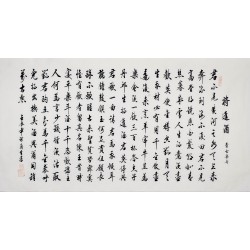 將進酒
君不見黃河之水天上來
奔流到海不復回君不見
高堂明鏡悲白髮朝如青
絲暮成雪人生得意須盡
歡莫使金樽空對月天
生我材必有用千金散盡
還復來烹羊宰牛且為
樂會須一飲三百杯岑夫子
丹丘生將進酒杯莫停與
君歌一曲請君為我傾耳
聽鐘鼓饌玉不足貴但願長
醉不願醒古來聖賢皆寂寞
惟有飲者留其名陳王昔時
宴平樂斗酒十千恣歡謔主
人何為言少錢徑須沽取
對君酌五花馬千金裘呼
兒將出換美酒與爾同銷
萬古愁